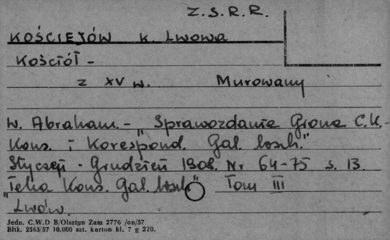 Z.S.R.R.
KOŚCIEJÓW k. Lwowa
Kościół -
z XV w. Murowany
W. Abraham. - "Sprawozdanie Grona C.K.
Kons. i Korespond. Gal. wsch."
Styczeń - Grudzień 1908. Nr 64-75 s. 13.
"Teka Kons. Gal. wsch." Tom III
"Lwów.
Jedn. C.W.D B/Olsztyn Zam 2776 /on/57
Błtk. 2563/57 10.000 szt. karton kl. 7 g 210.